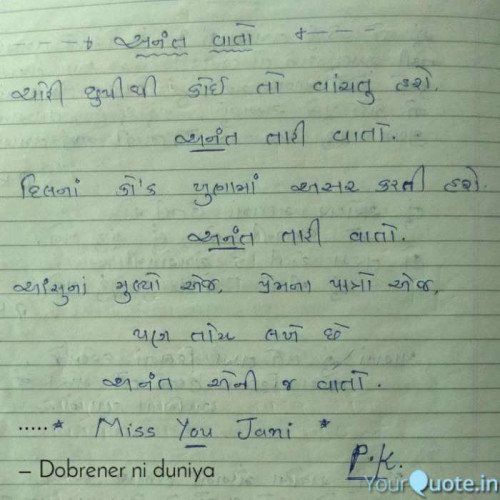 અનંત વાતો
ચોરી છુપીથી કોઈ તો વાંચતુ હશે.
અનંત તારી વાતો.
દિલનાં કો'ક ખુણામાં અસર કરતી હશે.
અનંત તારી વાતો.
આંસુનાં મુલ્યો એજ, પ્રેમના પાત્રો એજ,
પણ તોય લખે છે
અનંત એની જ વાતો.
.....* Miss You Jani *
P.K.
– Dobrener ni duniya
YourQuote.in